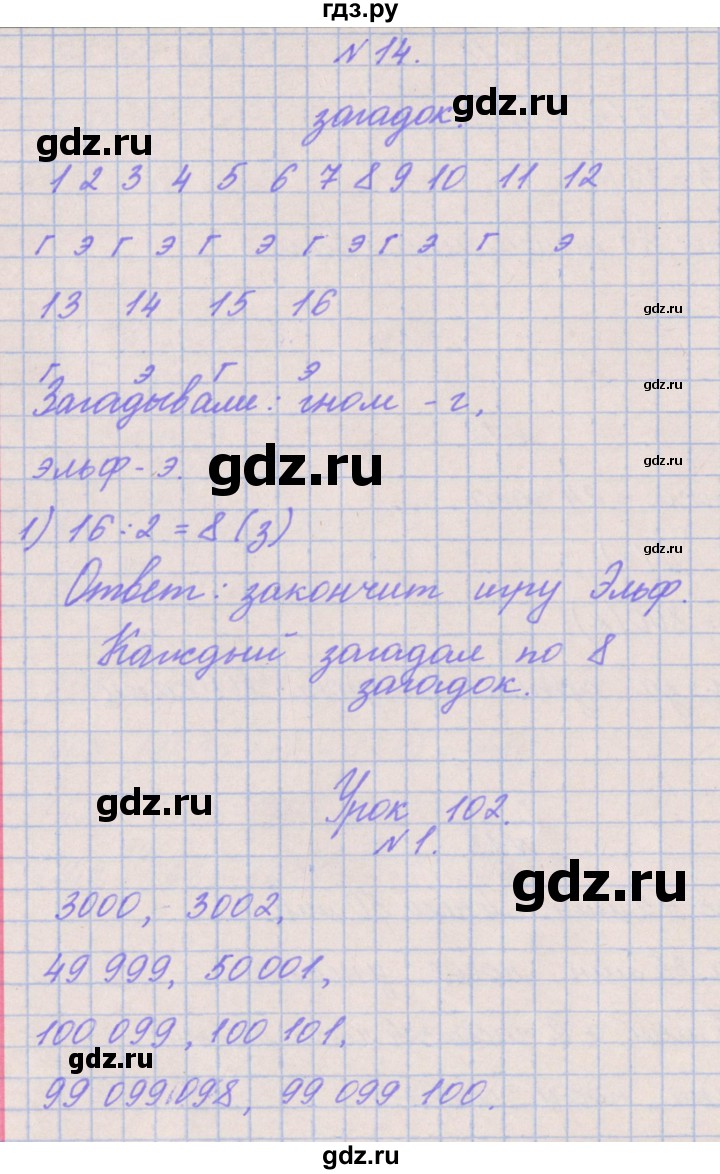 гдз.ру
N 14.
загадок.
gdz.ru
gdz.ru
1 2 3 4 5 6 7 8 9 10 11 12
г э г э г э г э г э г э
13 14 15 16
gdz.ru
г э г э
gdz.ru
Загадывали: гном - г,
эльф - э.
gdz.ru
gdz.ru
1) 16 : 2 = 8 (з)
gdz.ru
Ответ: закончит игру Эльф.
Каждый загадал по 8
загадок.
gdz.ru
gdz.ru
Урок 102.
N 1.
gdz.ru
3000, 3002,
49 999, 50 001,
100 099, 100 101,
gdz.ru
gdz.ru
99 099 098, 99 099 100.
gdz.ru